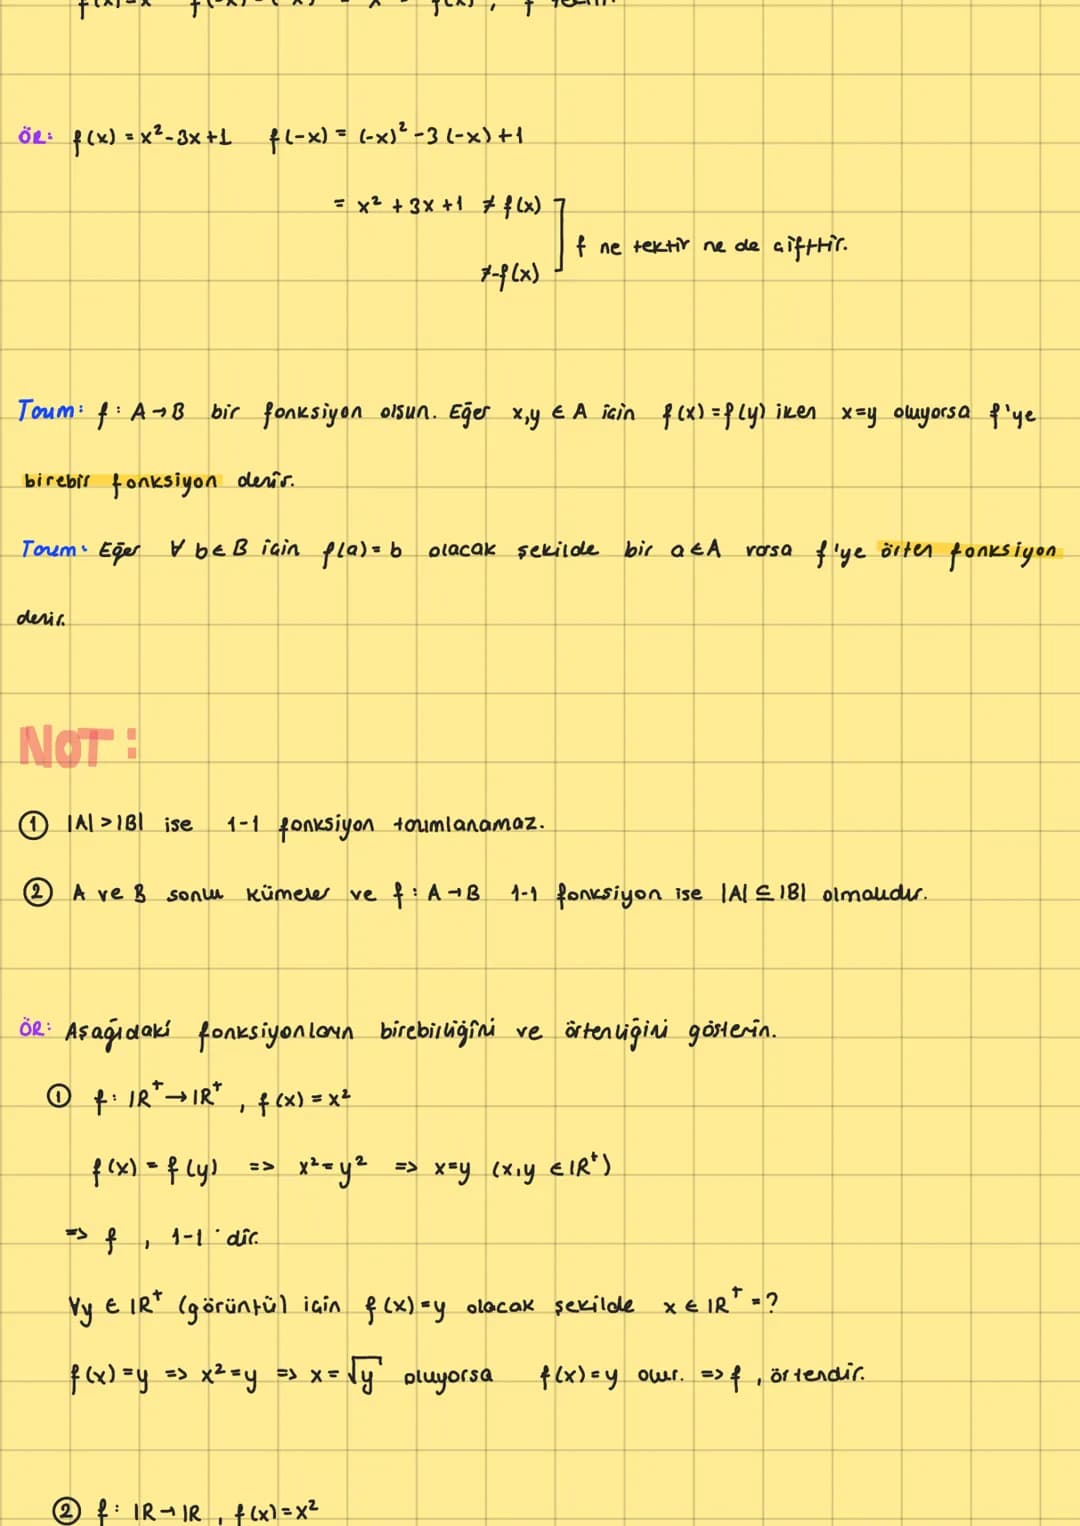 ÖR: f(x) = x²-3x+1 f(-x) = (-x)² -3(-x)+1
= x² +3x+1 ≠ f(x)
f ne tektir ne de çifttir.
≠-f(x)
Tanım: f: A→B bir fonksiyon olsun. Eğer x,y ∈ A için f(x)=f(y) iken x=y oluyorsa f'ye
birebir fonksiyon denir.
Tanım: Eğer ∀ b∈B için f(a)=b olacak şekilde bir a∈A varsa f'ye örten fonksiyon
denir.
NOT:
① |A|>|B| ise 1-1 fonksiyon tanımlanamaz.
② A ve B sonlu kümeler ve f: A→B 1-1 fonksiyon ise |A| ⊆ |B| olmalıdır.
ÖR: Aşağıdaki fonksiyonların birebirliğini ve örtenliğini gösterin.
① f: IR⁺→IR⁺, f(x) = x²
f(x) = f(y) => x²=y² => x=y (x,y ∈ IR⁺)
=> f, 1-1'dir.
∀y ∈ IR⁺ (görüntü) için f(x)=y olacak şekilde x ∈ IR⁺ =?
f(x)=y => x²=y => x=√y oluyorsa f(x)=y olur. => f, örtendir.
② f: IR→IR, f(x)=x²